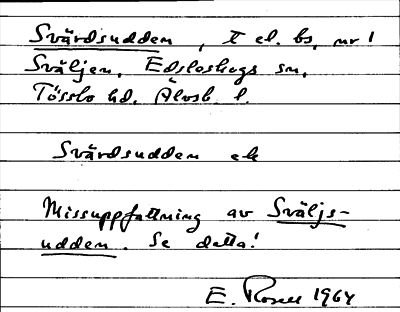 Svärdsudden, t el. bs, nr 1
Sväljen, Edsleskogs sn,
Tössbo hd, Älvsb. l.
Svärdsudden ek
Missuppfattning av Sväljs-
udden. Se detta!
E. Rosell 1964